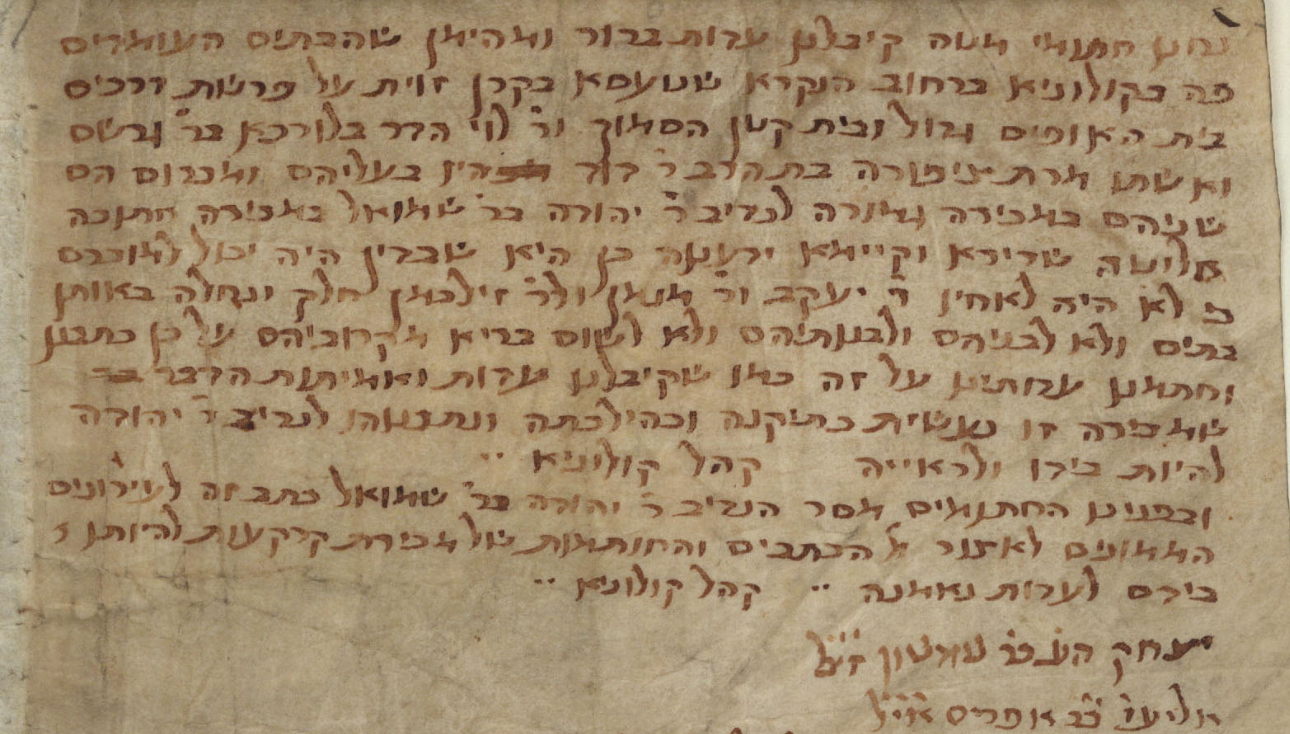 נחנן חתומי מטה קיבלנו עדות ברור ומהימן שהבתים העומדים
פה בקולוניא ברחוב הנקרא שטעסא בקרן זוית על פרשת דרכים
בית האופים גדול ובית קטן הסמוך ור' לוי הדר בלורכא בר'
ואשתו מרת ציפורה בת הרב ר' דוד היו בעליהם ומכרום הם
שניהם במכירה גמורה לנדיב ר' יהודה בר' שמואל במכירה חתוכה
חליטה שרירא וקיימא ידענו כן היא שבדין היה יכול למוכרם
כי לא היה לאחיו ר' יעקב ור' מנחם ולר' זילכמן חלק ונחלה באותן
בתים ולא לבניהם ולבנותיהם ולא לשום בריא מקרוביהם על כן כתבנו
וחתמנו עדותינו על זה כמו שקיבלנו עדות ואמיתות הדבר
שמכירה זו נעשית כתיקנה וכהילכתה ונתננוהו לנדיב ר' יהודה
להיות בידו ולראייה קהל קולוניא
ובפנינו החתומים מסר הנדיב ר' יהודה בר' שמואל כתב זה לעירונים
הממונים לאצור כל הכתבים והחותמות של מכירת קרקעות להיותו
בידם לעדות נאמנה קהל קולוניא
יצחק בר' שמשון
אליעזר בר' אפרים